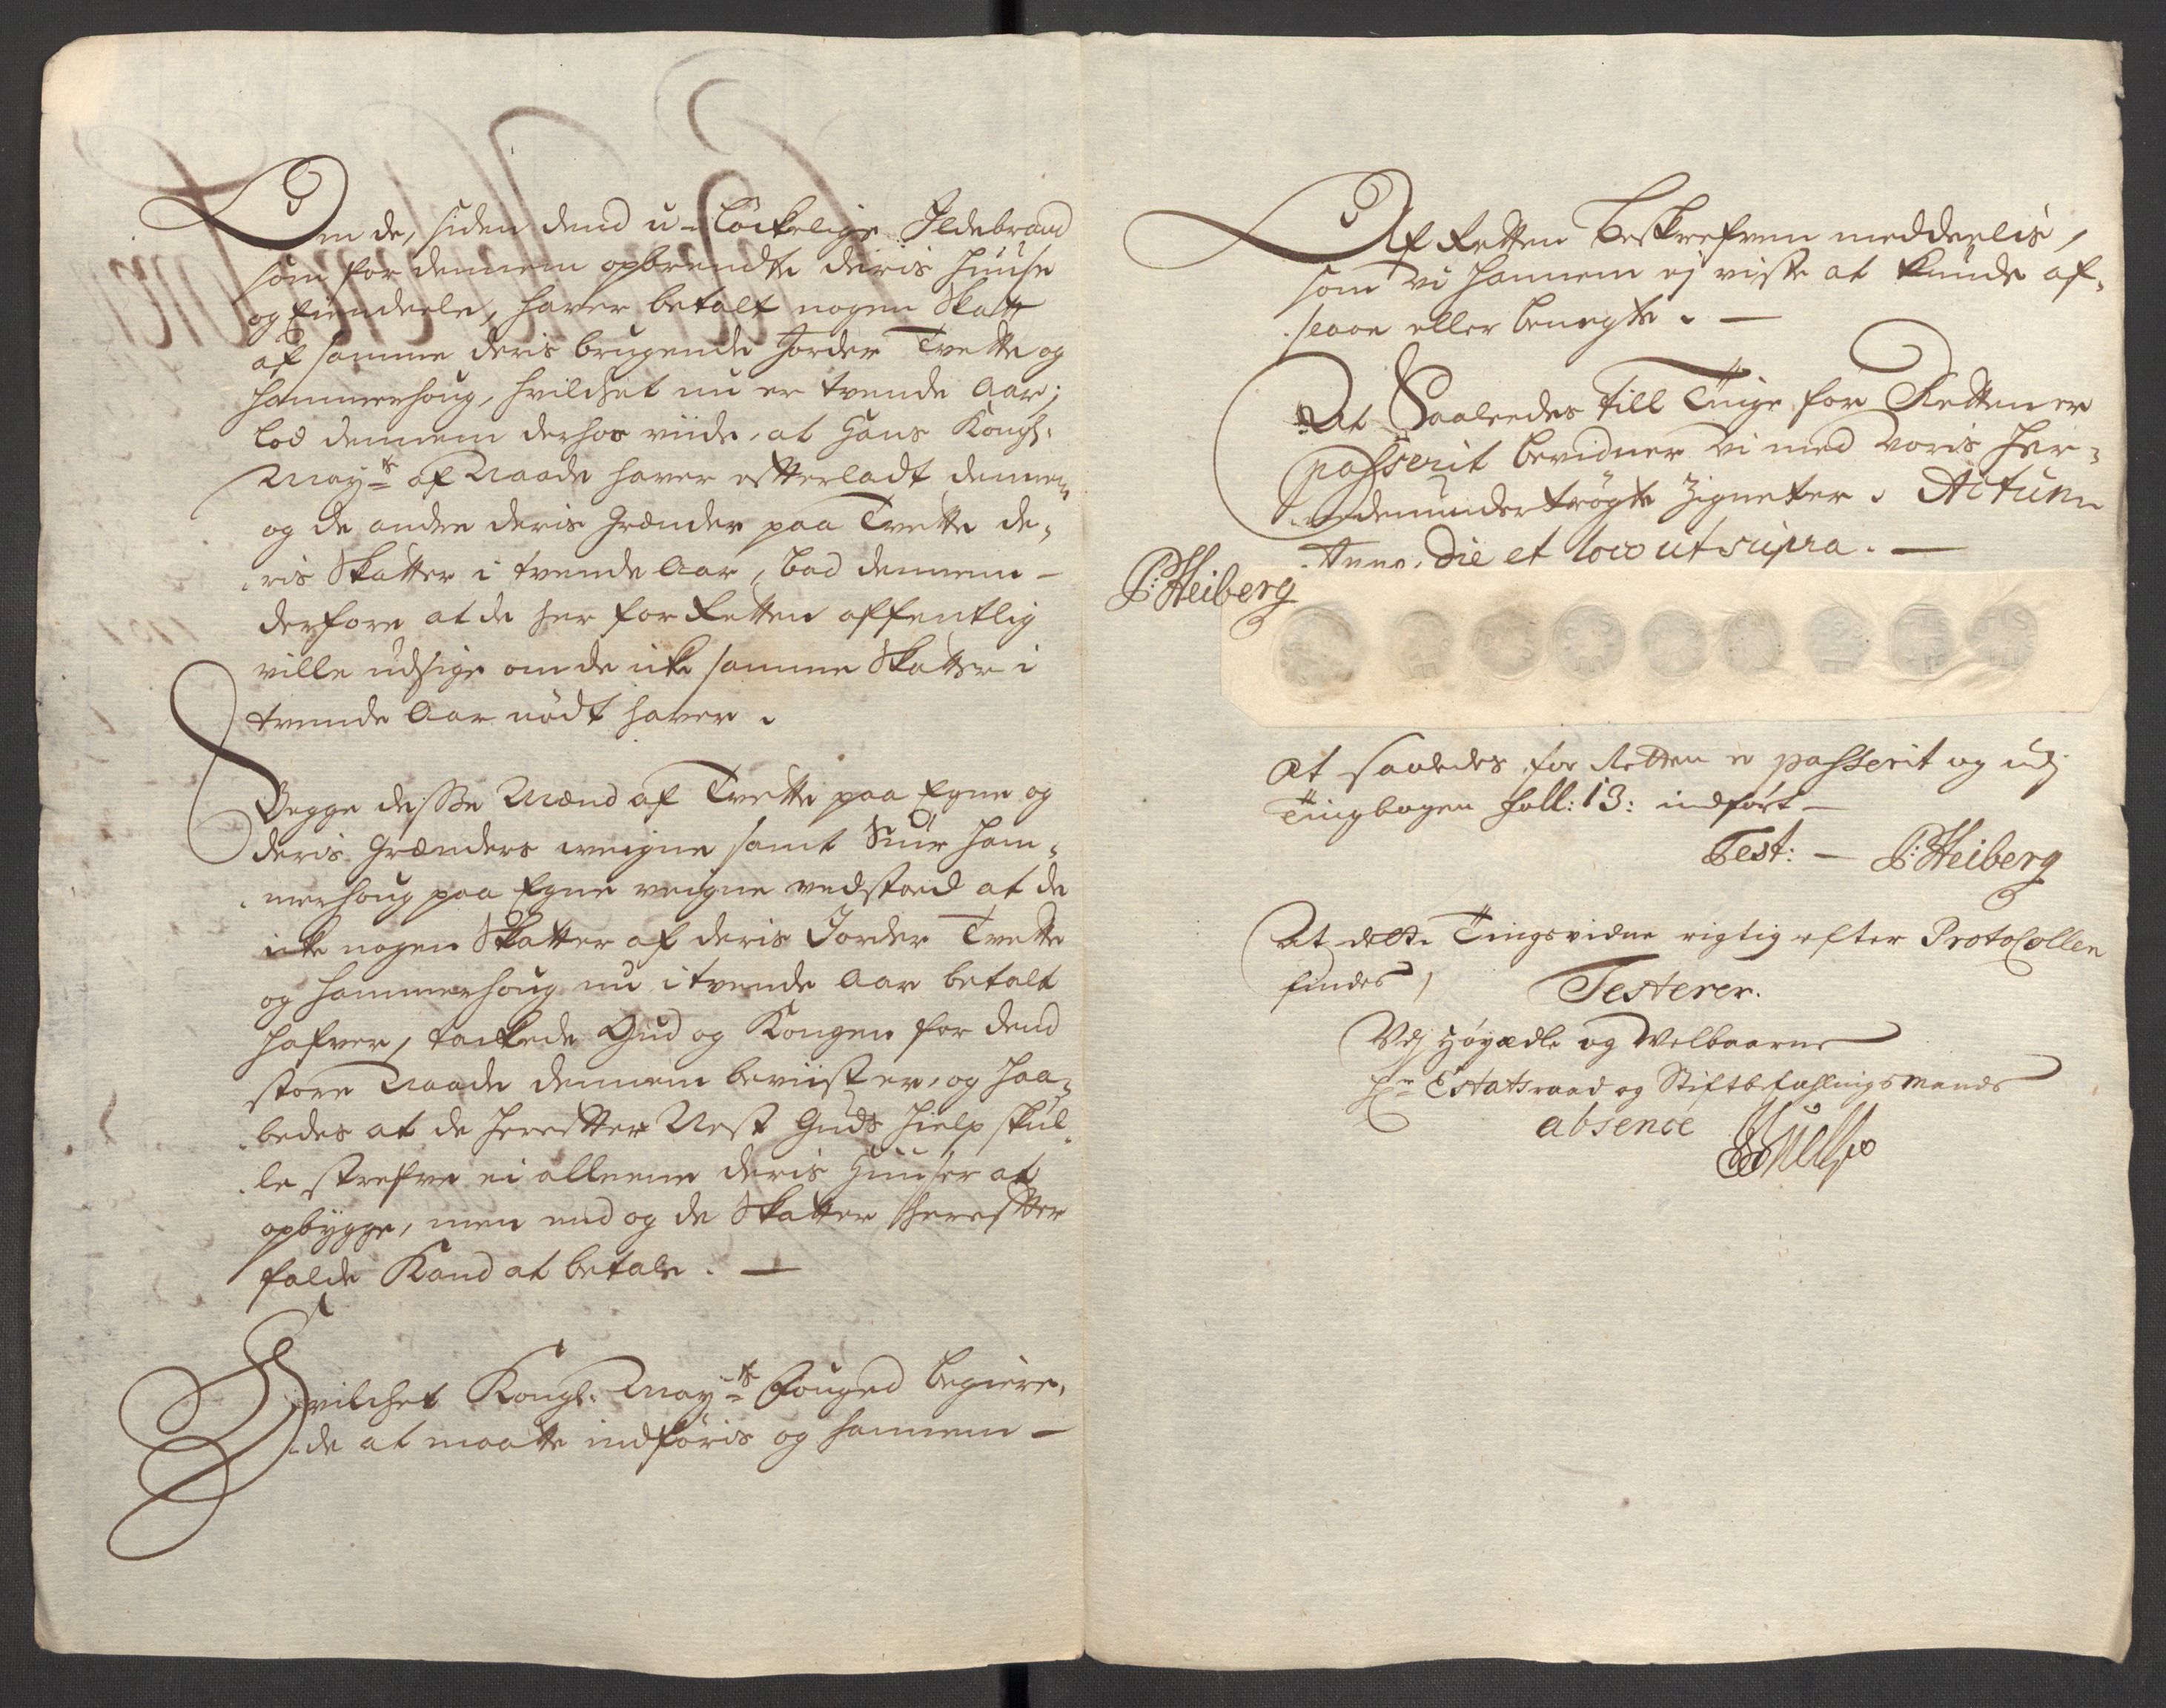 Om de, siden dend u-Löckelige Ildebrand
som for dennem opbrendte deris Huuse
og Eiendeele, haver betalt nogen Skatt
af samme deris brugende Jorder Tvette og
Hammerhoug, hvilchet nu er tvende Aar;
lod dennem derhos viide, at Hans Kongl:
May:ts af Naade haver efterladt dennem
og de andre deris Grænder paa Tvette de,
ris Skatter i tvende Aar, bad dennem -
derfore at de her for Retten offentlig
ville udsige om de icke samme Skatter i
tvende Aar nödt haver.
Begge desse Mænd af Tvette paa Egne og
deris Grænders veigne samt Siur Ham,
merhoug paa Egne veigne vedstoed at de
icke nogen Skatter af deris Jorder Tvette
og Hammerhoug nu i tvende Aar betalt
hafver, tackede Gud og Kongen for dend
store Naade dennem beviist er, og haa,
bedes at de herefter Nest Guds hielp skul,
le strefve ei alleene deris Huuser at
opbygge, men end og de Skatter herefter
falde Kand at betale. —
Hvilchet Kongl: May:ts Fouged begiere,
de at maatte indföris og hannem —
Af Retten beskrefven meddeelis,
som vi hannem ej viste at kunde af,
slaae eller benegte. —
At Saaleedes till Tinge for Retten er
passerit bevidner vi med voris her,
nedenundertrögte Zigneter. Actum
Anno, Die et loco ut supra. —
P: Heiberg
At saaledes for Retten er passerit og udj
Tingbogen foll: 13: indfört —
Test: — P: Heiberg
At dette Tingsvidne rigtig efter Protocollen
findes, Testerer.
Vdj Höyædle og Velbaarne
Hr: Estatsraad og Stiftbefahlingsmands
absence